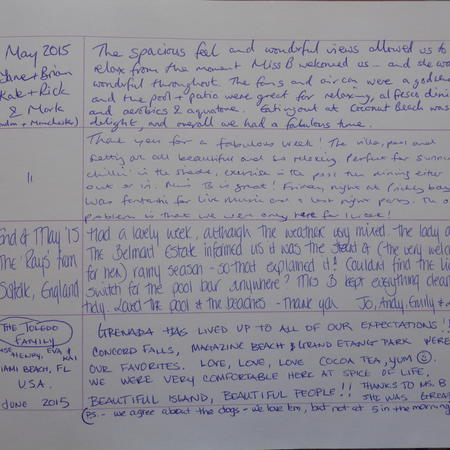 May 2015
Jane + Brian
Kate + Rick
& Mark
The spacious feel and wonderful views allowed us to
relax from the moment Miss B welcomed us - and she wo
wonderful throughout. The fans and aircon were a godsen
and the pool + patio were great for relaxing, al fresco dinin
and aerobics & aquatone. Eating out at Coconut Beach was
delight, and overall we had a fabulous time.
"
Thank you for a fabulous week! The villa, pool and
setting are all beautiful and so relaxing. Perfect for sunnin
chillin' in the shade, exercise in the pool then dining either
out or in. Miss B is great! Friday night at Prickly bay
was fantastic for live music and a last night party. The o
problem is that we were only here for 1 week!
End of May '15
The 'Rays' from
Suffolk, England
Had a lovely week, although the weather very mixed. The lady a
The Belmont Estate informed us it was the start of (the very welco
for her) rainy season - so that explained it! Couldn't find the li
switch for the pool bar anywhere? Mrs B kept everything clean
tidy. Loved the pool & the beaches - Thank you Jo, Andy, Emily &
THE TOLEDO
FAMILY
HENRY, EVA &
MIAMI BEACH, FL
U.S.A.
JUNE 2015
GRENADA HAS LIVED UP TO ALL OF OUR EXPECTATIONS!!
CONCORD FALLS, MAGAZINE BEACH & GRAND ETANG PARK WERE
OUR FAVORITES. LOVE, LOVE, LOVE COCOA TEA, YUM ☺.
WE WERE VERY COMFORTABLE HERE AT SPICE OF LIFE.
BEAUTIFUL ISLAND, BEAUTIFUL PEOPLE!! THANKS TO MS. B
SHE WAS GREA
(PS. - we agree about the dogs - we love 'em, but not at 5 in the morning